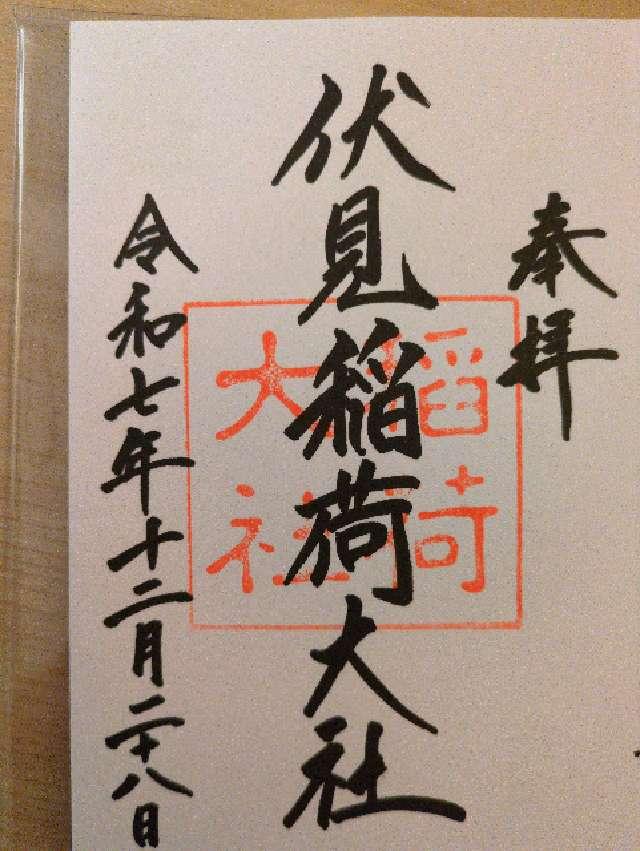 奉拝
伏見稲荷大社
令和七年十二月二十八日
稲荷
大社